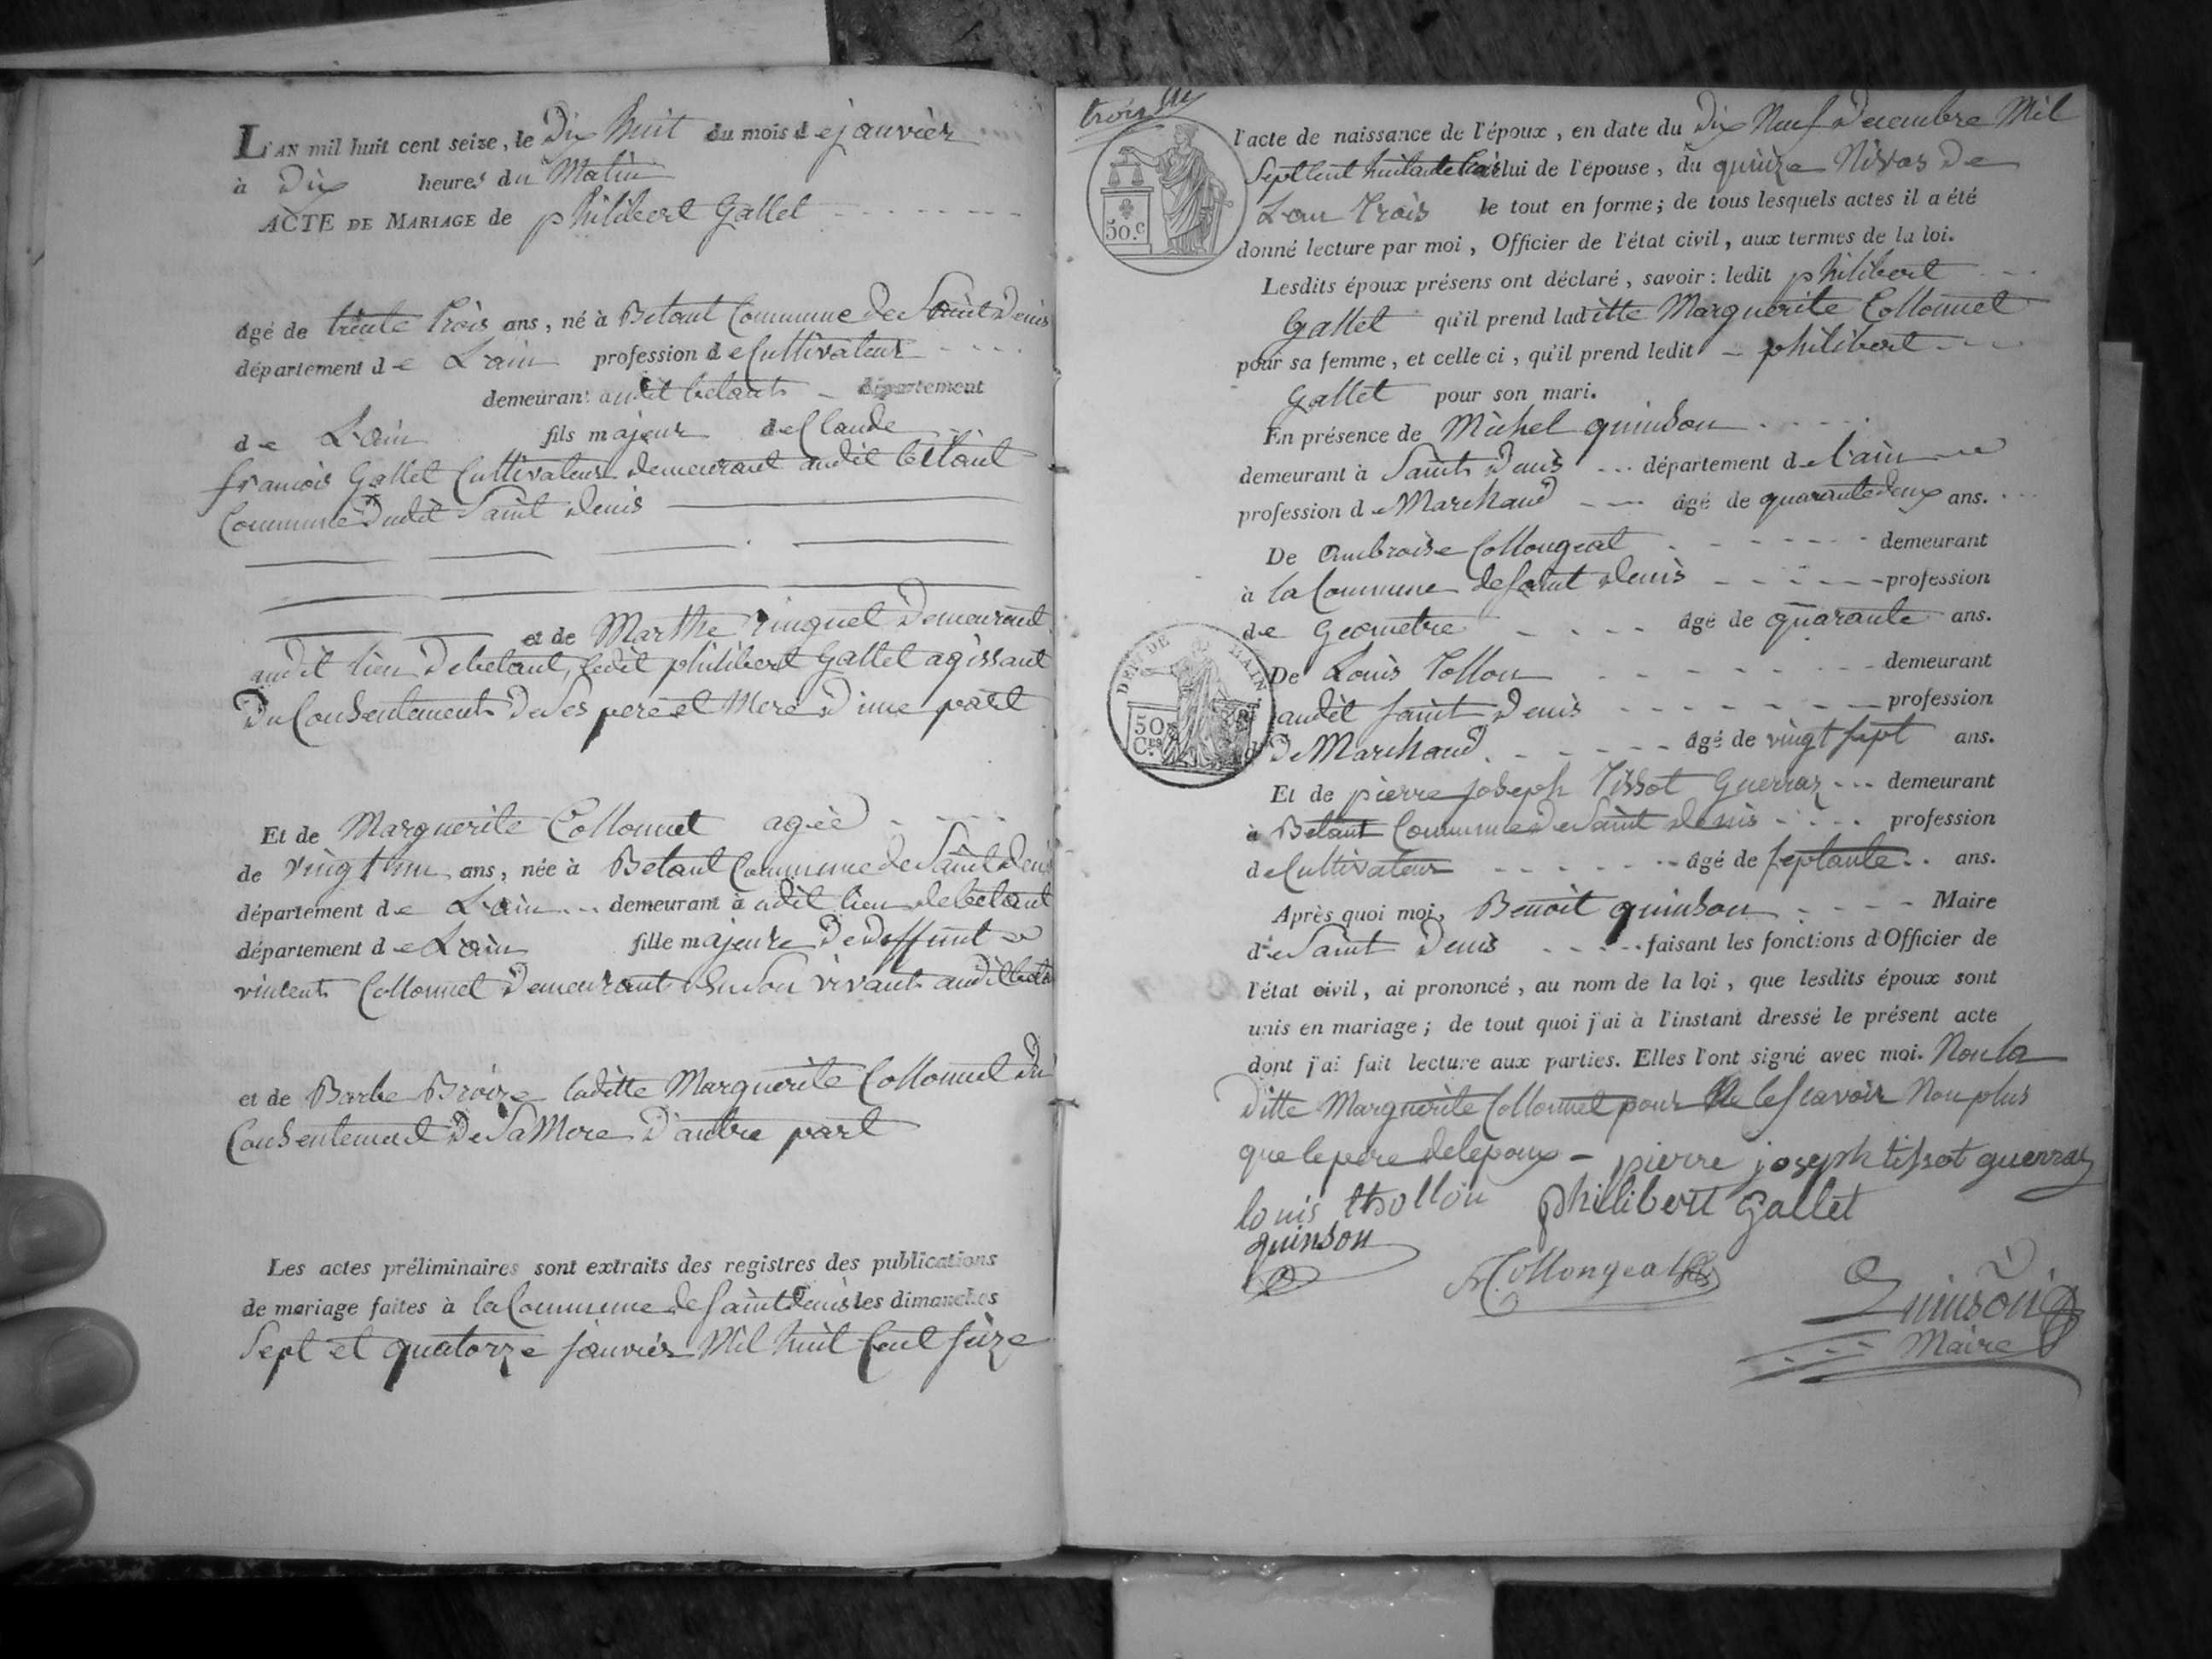 L'AN mil huit cent seize, le Dix huit du mois de janvier
à Dix heures du Matin
ACTE DE MARIAGE de philibert Gallet
âgé de trente trois ans, né à Betant Commune de Saint Denis
département de L'ain profession de Cultivateur
demeurant audit betant département
de L'ain fils majeur de Claude
francois Gallet Cultivateur demeurant audit betant
Commune dudit Saint Denis
et de Marthe ringuet Demeurant
audit lieu de betant, ledit philibert Gallet agissant
Du Consentement De Ses pere et Mere D'une part
Et de Marguerite Collonnet agée
de vingt un ans, née à Betant Commune de Saint Denis
département de L'ain demeurant à udit lieu de betant
département de L'ain fille majeure De deffunt
vincent Collonnet Demeurant En Son vivant audit
et de Barbe Broize laditte Marguerite Collonnet Du
Consentement De Sa Mere D'autre part
Les actes préliminaires sont extraits des registres des publications
de mariage faites à la Commune de Saint denis les dimanches
Sept et quatorze janvier Mil huit Cent Seize
trois
50.c
l'acte de naissance de l'époux, en date du Dix Neuf Decembre Mil
Sept Cent huitante trois celui de l'épouse, du quinze Nivos De
L'an trois le tout en forme; de tous lesquels actes il a été
donné lecture par moi, Officier de l'état civil, aux termes de la loi.
Lesdits époux présens ont déclaré, savoir: ledit philibert
Gallet qu'il prend laditte Marguerite Collonnet
pour sa femme, et celle ci, qu'il prend ledit philibert
Gallet pour son mari.
En présence de Michel quinson
demeurant à Saint Denis département de l'ain
profession de Marchand âgé de quarante deux ans.
De Ambroise Collongeat demeurant
à la Commune de Saint Denis profession
de Geometre âgé de quarante ans.
DEPT DE L'AIN
50 Ces
De Louis Tollon demeurant
audit Saint Denis profession
De Marchand âgé de vingt sept ans.
Et de pierre joseph Tissot Guerraz demeurant
à Betant Commune de Saint Denis profession
de Cultivateur âgé de Septante ans.
Après quoi moi, Benoit quinson Maire
de Saint Denis faisant les fonctions d'Officier de
l'état civil, ai prononcé, au nom de la loi, que lesdits époux sont
unis en mariage; de tout quoi j'ai à l'instant dressé le présent acte
dont j'ai fait lecture aux parties. Elles l'ont signé avec moi. Non la
ditte Marguerite Collonnet pour Ne le Scavoir Non plus
que le pere de lepoux - pierre joseph tissot guerraz
louis thollon philibert gallet
quinson
Collongeat
Quinson
Maire